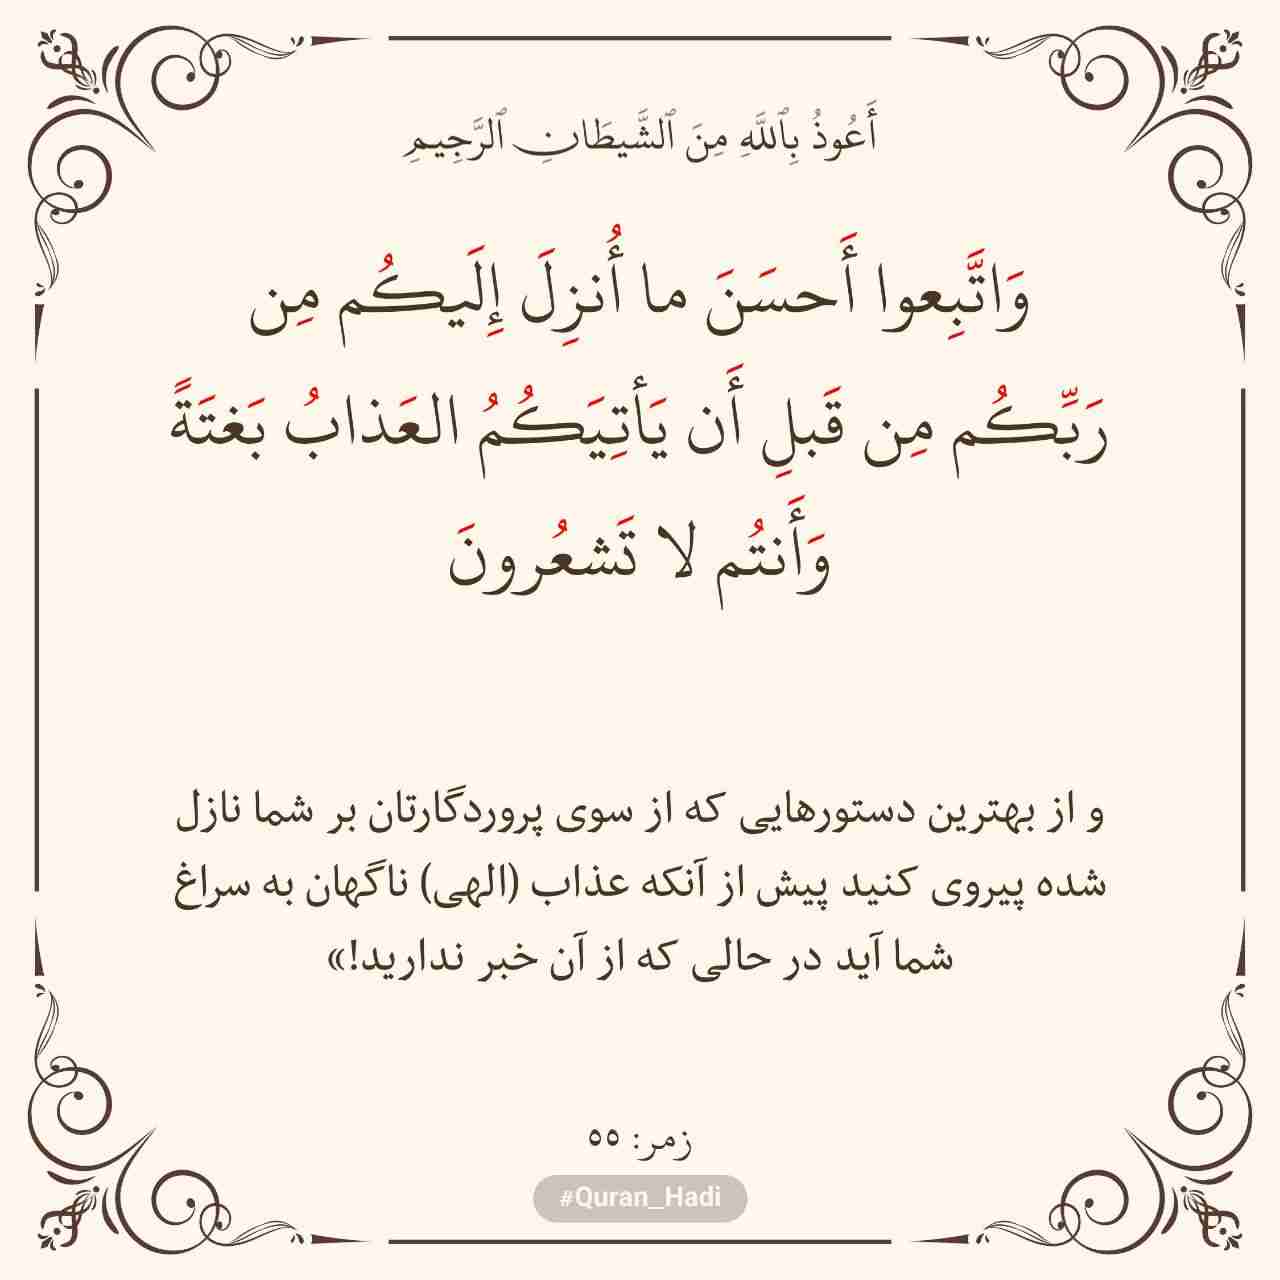 أَعُوذُ بِٱللَّهِ مِنَ ٱلشَّيطَانِ ٱلرَّجِيمِ
وَاتَّبِعوا أَحسَنَ ما أُنزِلَ إِلَيكُم مِن
رَبِّكُم مِن قَبلِ أَن يَأتِيَكُمُ العَذابُ بَغتَةً
وَأَنتُم لا تَشعُرونَ
و از بهترین دستورهایی که از سوی پروردگارتان بر شما نازل
شده پیروی کنید پیش از آنکه عذاب (الهی) ناگهان به سراغ
شما آید در حالی که از آن خبر ندارید!»
زمر: ۵۵
#Quran_Hadi